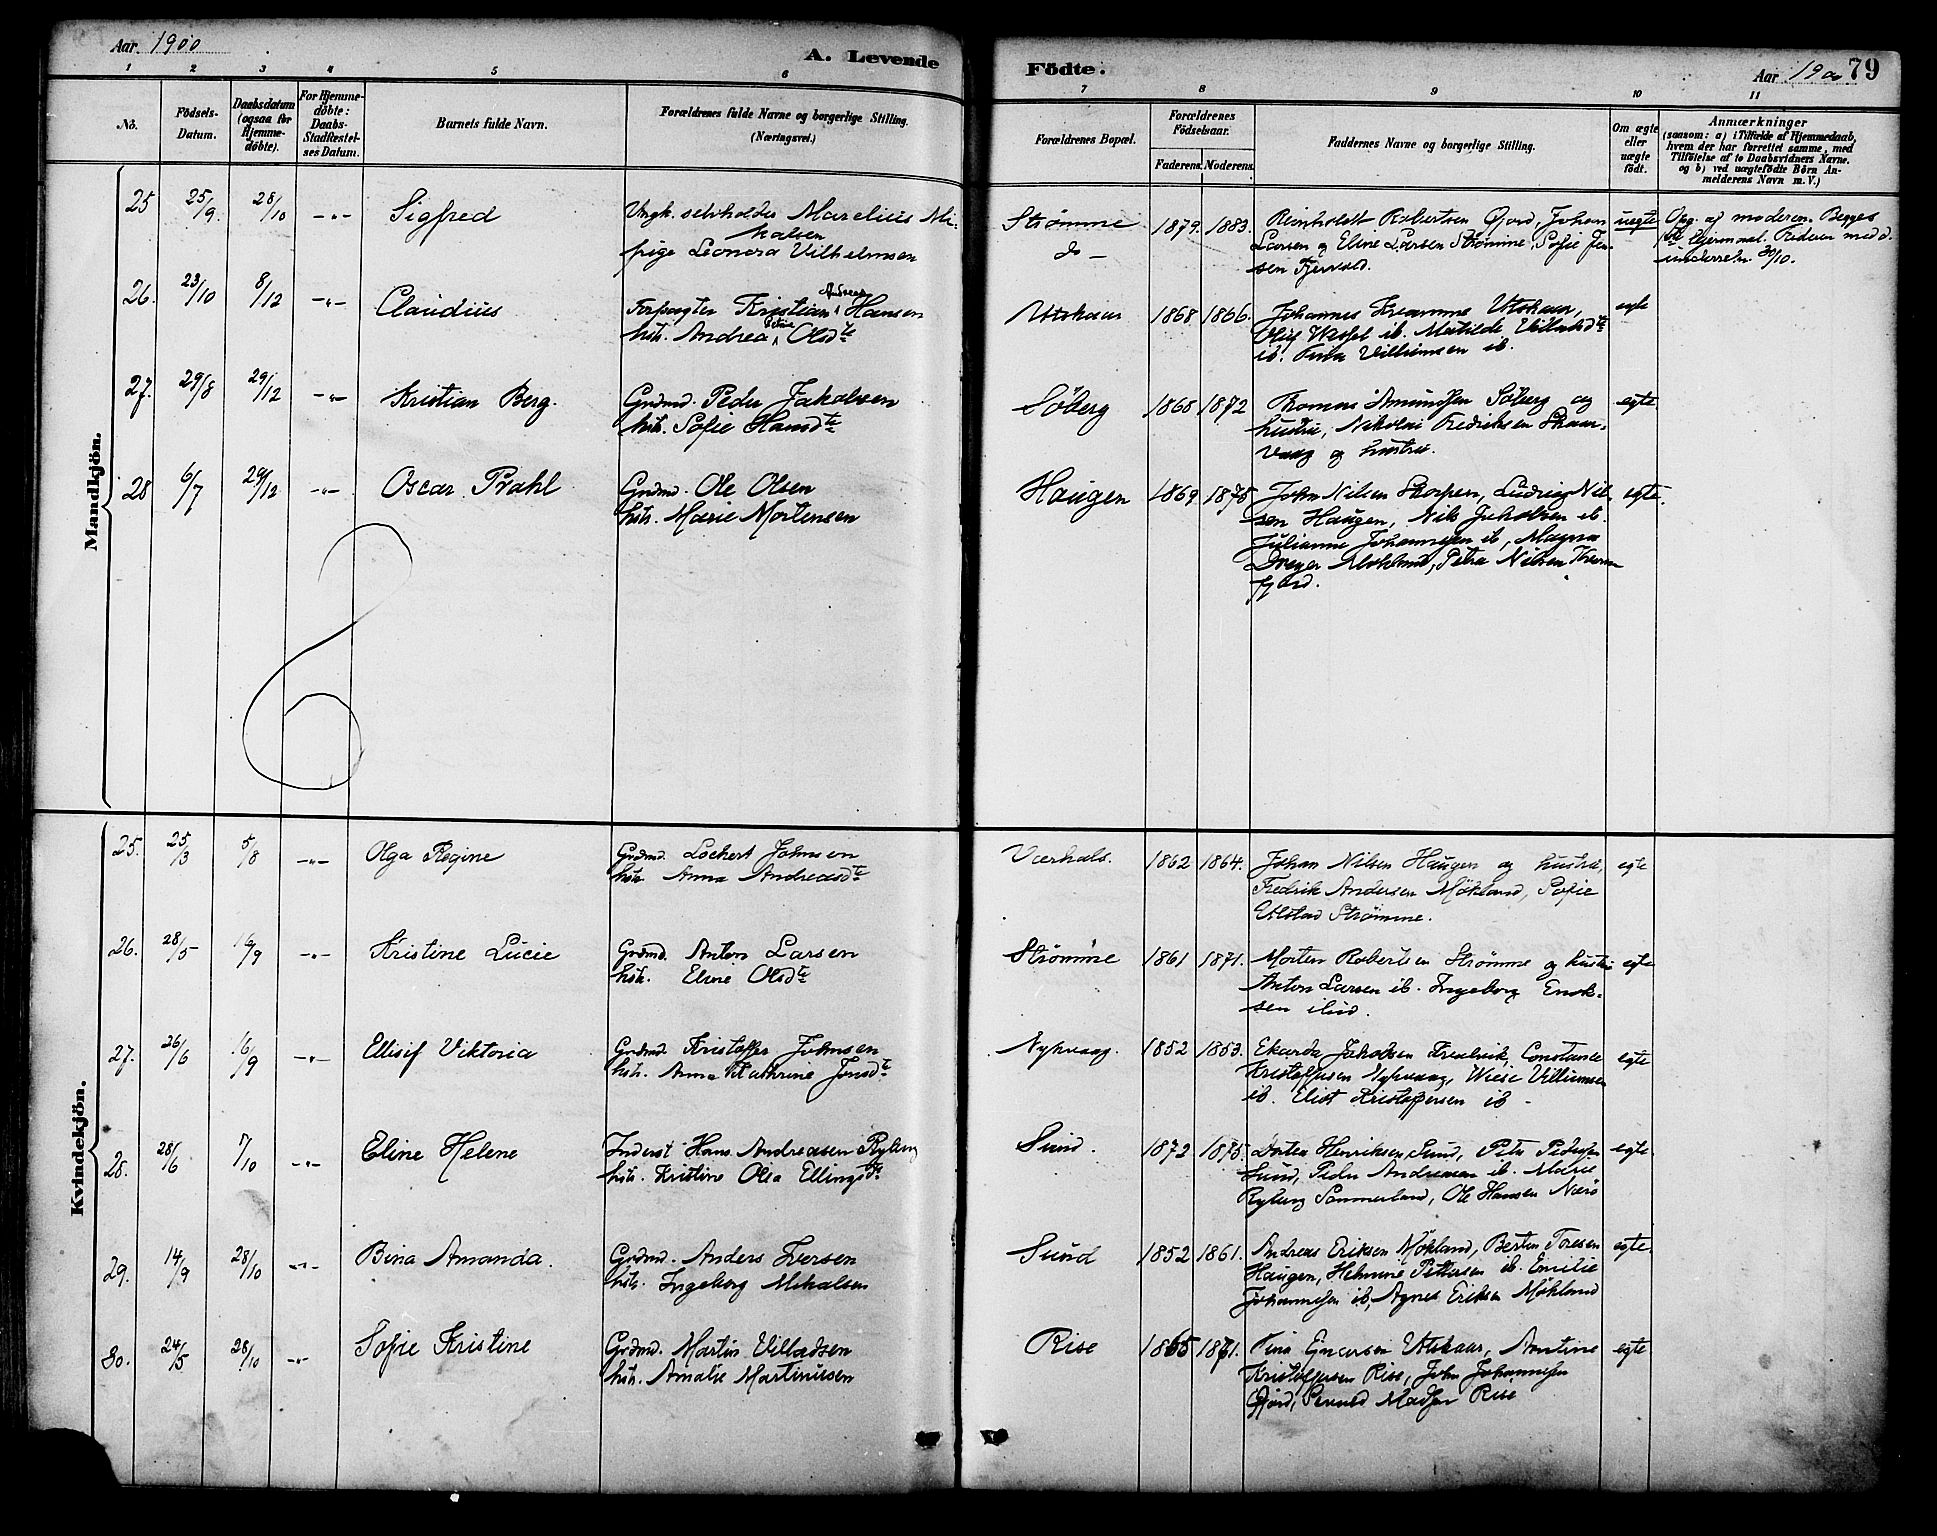 Aar. 1900
A. Levende
Födte.
Aar 1900 79
1 2 3 4 5 6 7 8 9 10 11
No.
Födsels-Datum.
Daabsdatum (ogsaa for Hjemme-døbte).
For Hjemme-døbte: Daabs-Stadfæstel-ses Datum.
Barnets fulde Navn.
Forældrenes fulde Navne og borgerlige Stilling. (Næringsvei.)
Forældrenes Bopæl.
Forældrenes Födselsaar.
Faderens. Moderens.
Faddernes Navne og borgerlige Stilling.
Om ægte eller uægte født.
Anmærkninger
(saasom: a) i Tilfælde af Hjemmedaab,
hvem der har forrettet samme, med
Tilföielse af to Daabsvidners Navne.
og b) ved uægtefödte Börn An-
melderens Navn m. V.)
Mandkjön.
25 25/9. 28/10 -"- Sigfred Ungk. selvholder Marelius Mi-
kalsen
pige Leonora Vilhelmsen
Strømme
do -
1879. 1883. Reinholdt Robertsen Gjord, Johan
Larsen og Eline Larsen Strømme, Sofie Jen-
sen
uegte Opg. af moderen. Begges
Faderen med d.
underretn. 30/10.
26. 23/10 8/12 -"- Claudius Forpagter Kristian Andreas Hansen
hstr. Andrea Petrine Olsdtr
Utskaar 1868 1866. Johannes Kramme Utskaar,
Wessel ib. Matilde
ib. Villumsen ib.
egte
27. 29/8 29/12 -"- Kristian Berg. Grdmd. Peder Jakobsen
hstr. Sofie Hansdtr
Søberg 1868 1872 Thomas Amundsen Søberg og
hustru, Nikolai Fedriksen Skaar-
vaag og hustru.
egte.
28 6/7 29/12 -"- Oscar Prahl Grdmd. Ole Olsen
hstr. Marie Mortensen
Haugen 1869 1875 John Nilsen Skorpen, Ludvig Nil-
sen Haugen, Nils Jakobsen ib.
Julianne Johannessen ib, Magna
Dreyer Alokland, Petra Nilsen
fjord.
egte.
Kvindekjön.
25. 25/3 5/8 -"- Olga Regine Grdmd. Lockert Johnsen
hstr. Anna Andreasdtr
Værhals. 1862 1864. Johan Nilsen Haugen og hustru,
Fredrik Andersen Møkland, Sofie
Ulstad Strømme.
egte
26. 28/5 16/9 -"- Kristine Lucie Grdmd. Anton Larsen
hstr. Eline Olsdtr
Strømme 1861 1871. Morten Robertsen Strømme og hustru
Anton Larsen ib. Ingeborg Enok-
sen ibid.
egte
27. 26/6 16/9 -"- Ellisif Viktoria Grdmd. Kristoffer Johnsen
hstr. Anna Kathrine Jonsdtr
Nykvaag. 1852 1853. Jakobsen Fredvik, Constance
Kristoffersen Nykvaag, Wiese Villumsen
ib. Kristoffersen ib -
egte
28. 28/6 7/10 -"- Eline Helene Inderst Hans Andreasen Ryberg
hstr. Kristine Olea Ellingsdtr
Sund. 1872 1875. Dorten Henriksen Sund, Petra Pedersen
Sund, Peder Andreasen ib. Marie
Ryberg Sommerland, Ole Hansen Nærø
egte.
29. 14/9 28/10 -"- Bina Amanda. Grdmd. Anders Iversen
hstr. Ingeborg Mikalsen
Sund 1852 1861. Andreas Eriksen Møkland, Berten Toresen
Haugen, Helmine Pettersen ib. Emilie
Johannesen ib, Agnes Eriksen Møkland
egte.
30. 24/5 28/10 -"- Sofie Kristine Grdmd. Martin Villadsen
hstr. Amalie Martinussen
Rise 1865 1871. Tina Einarsen Utskaar, Antine
Kristoffersen Rise, John Johannesen
Gjord, Madsen Rise
egte